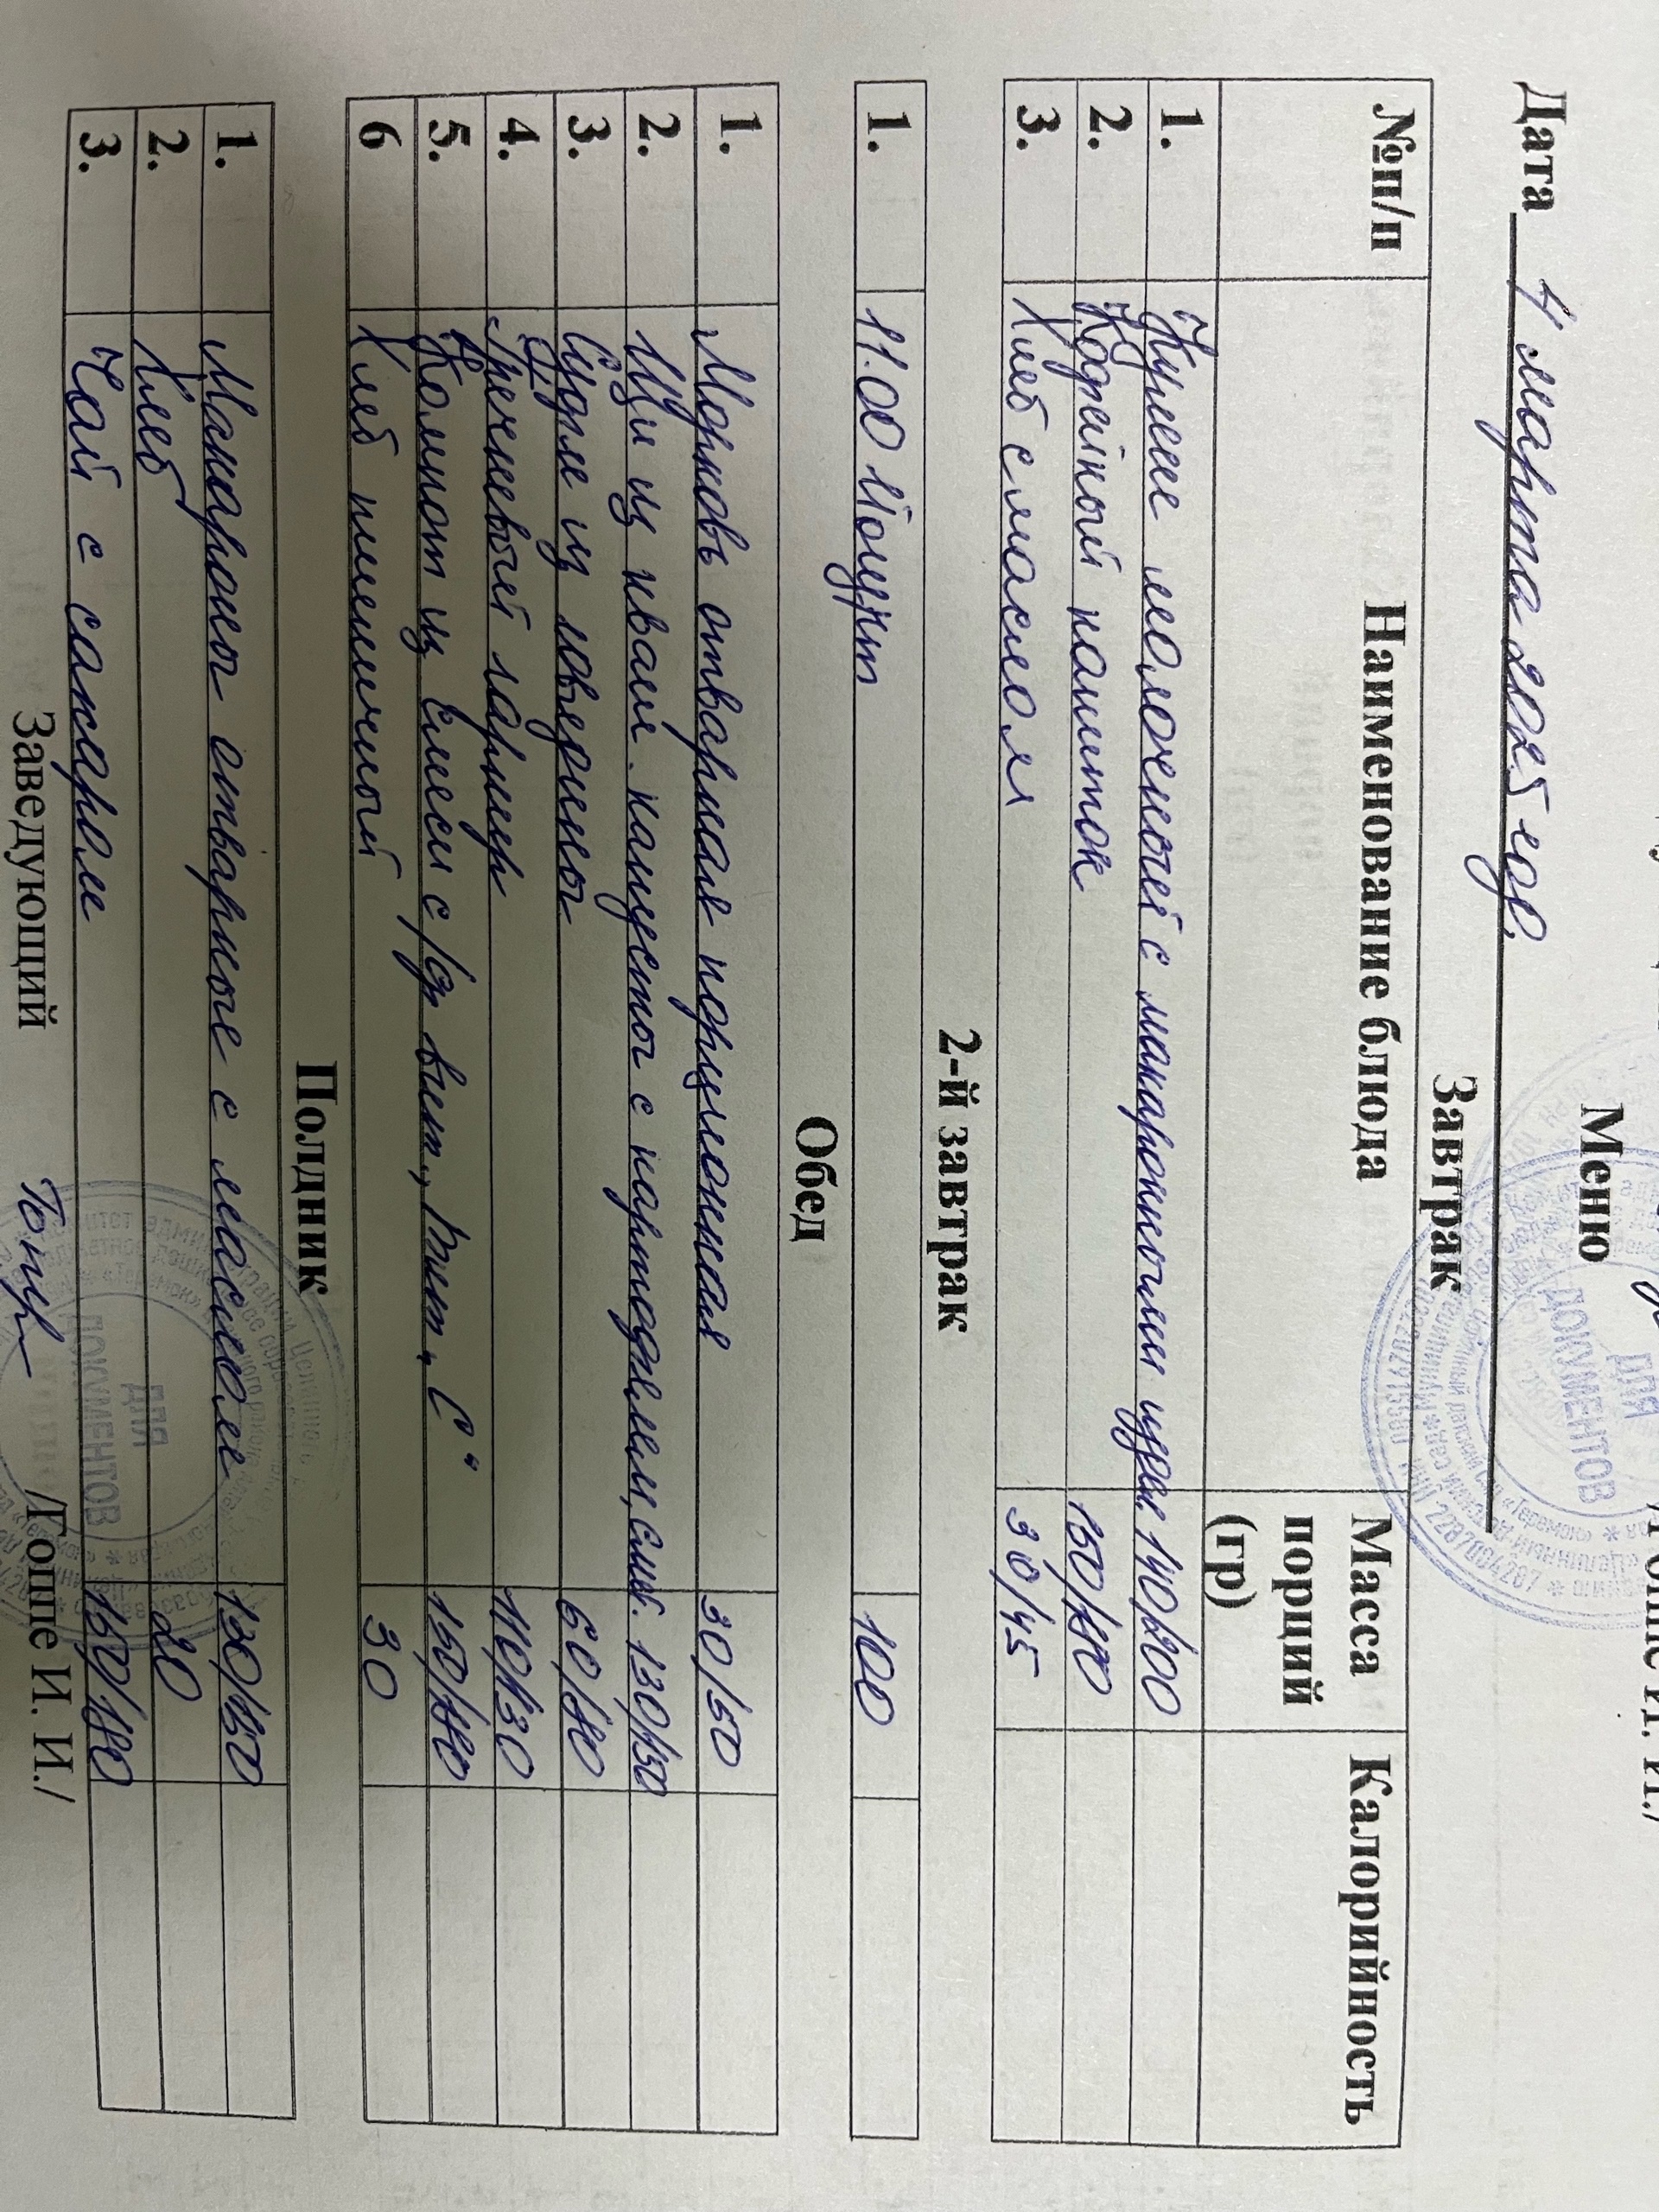 Меню
Дата 4 марта 2025 год.
Завтрак
№п/п Наименование блюда Масса порций (гр) Калорийность
1. Купеш молочный с макаронными издел. 140/200
2. Кофейный напиток 150/180
3. Хлеб с маслом 30/45
2-й завтрак
1. 11.00 Йогурт 100
Обед
1. Морковь отварная порционная 30/50
2. Щи из кваш. капусты с картофелем, смет. 130/150
3. Суфле из говядины 60/80
4. Гречневый гарнир 110/130
5. Компот из смеси с/фр вит. „С" 150/180
6 Хлеб пшеничный 30
Полдник
1. Макароны отварные с маслом 130/150
2. Хлеб 20
3. Чай с сахаром 150/180
Заведующий /Гоппе И. И./
ДЛЯ ДОКУМЕНТОВ